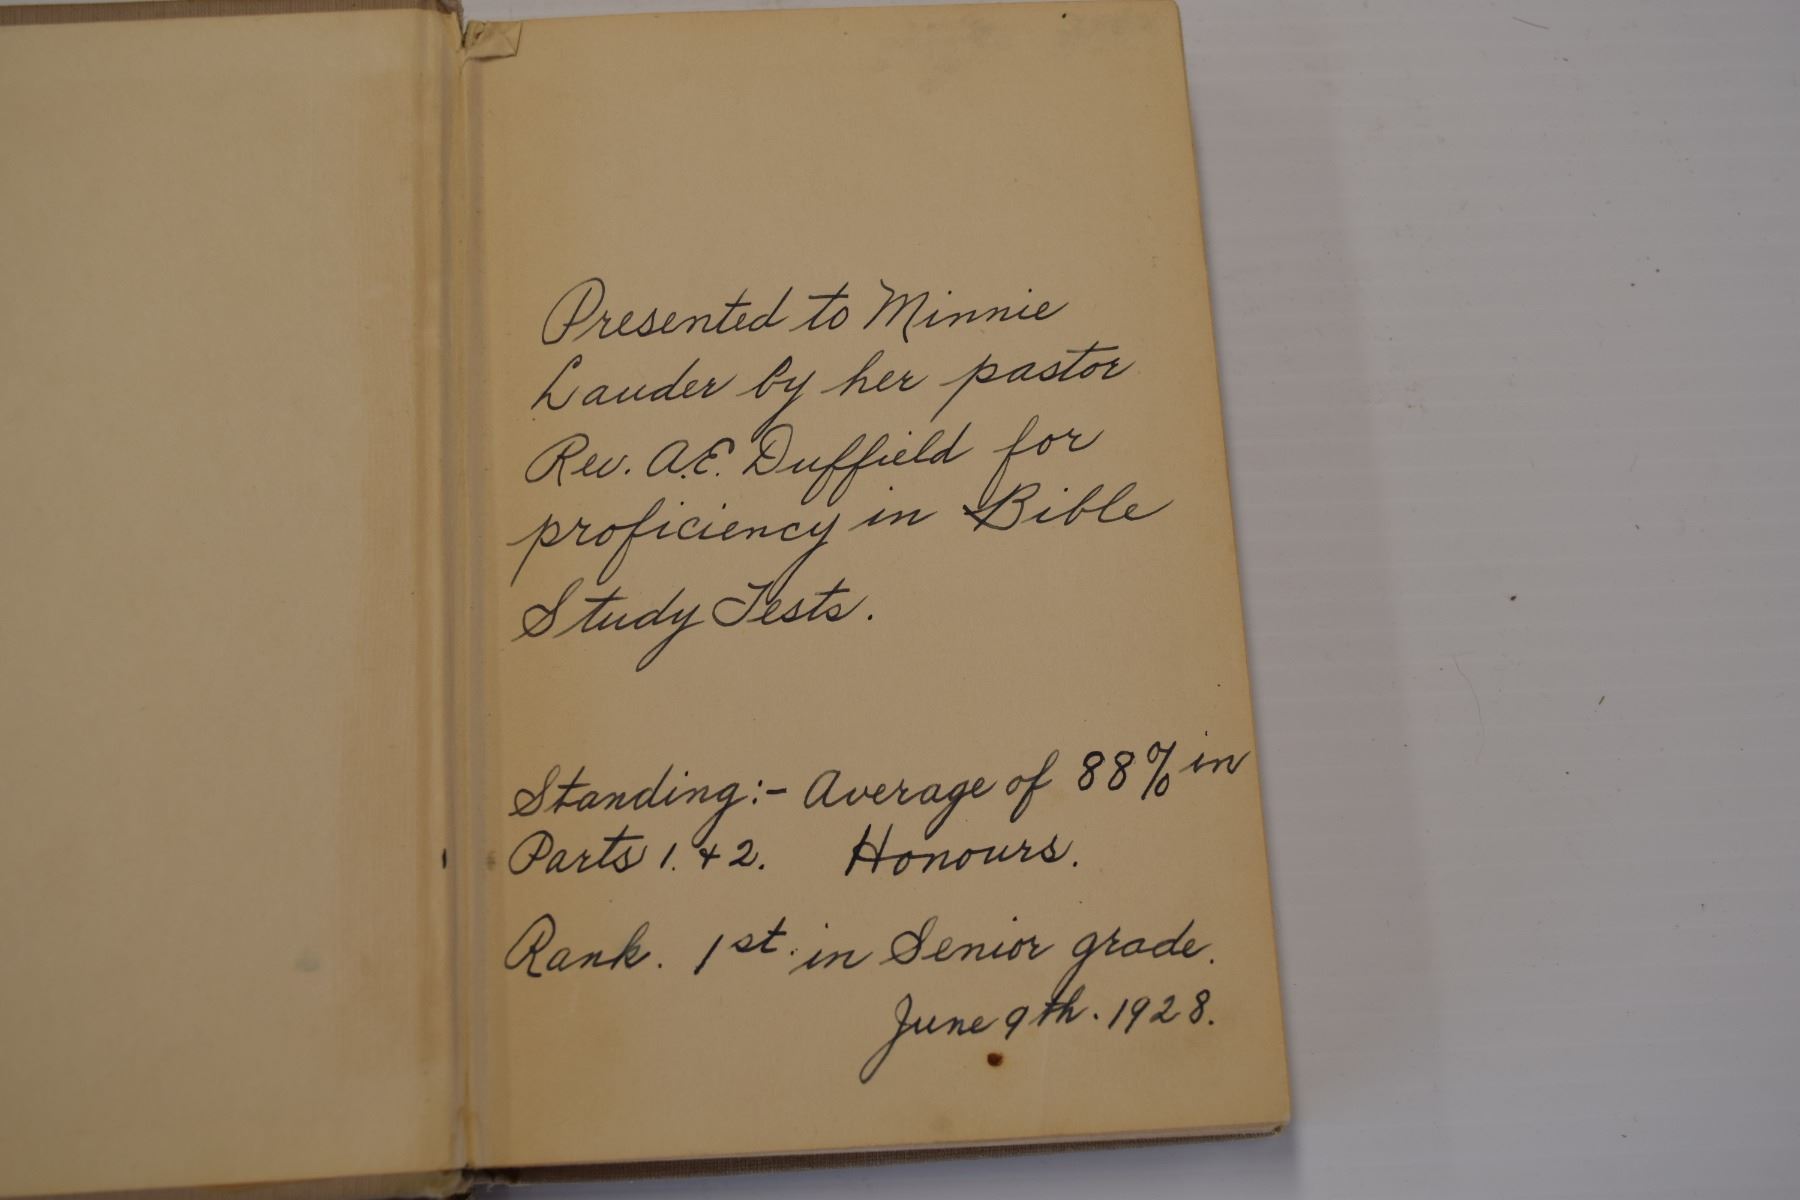 Presented to Minnie
Lauder by her pastor
Rev. A.E. Duffield for
proficiency in Bible
Study Tests.
Standing:- Average of 88% in
Parts 1. & 2. Honours.
Rank. 1st. in Senior grade.
June 9th. 1928.